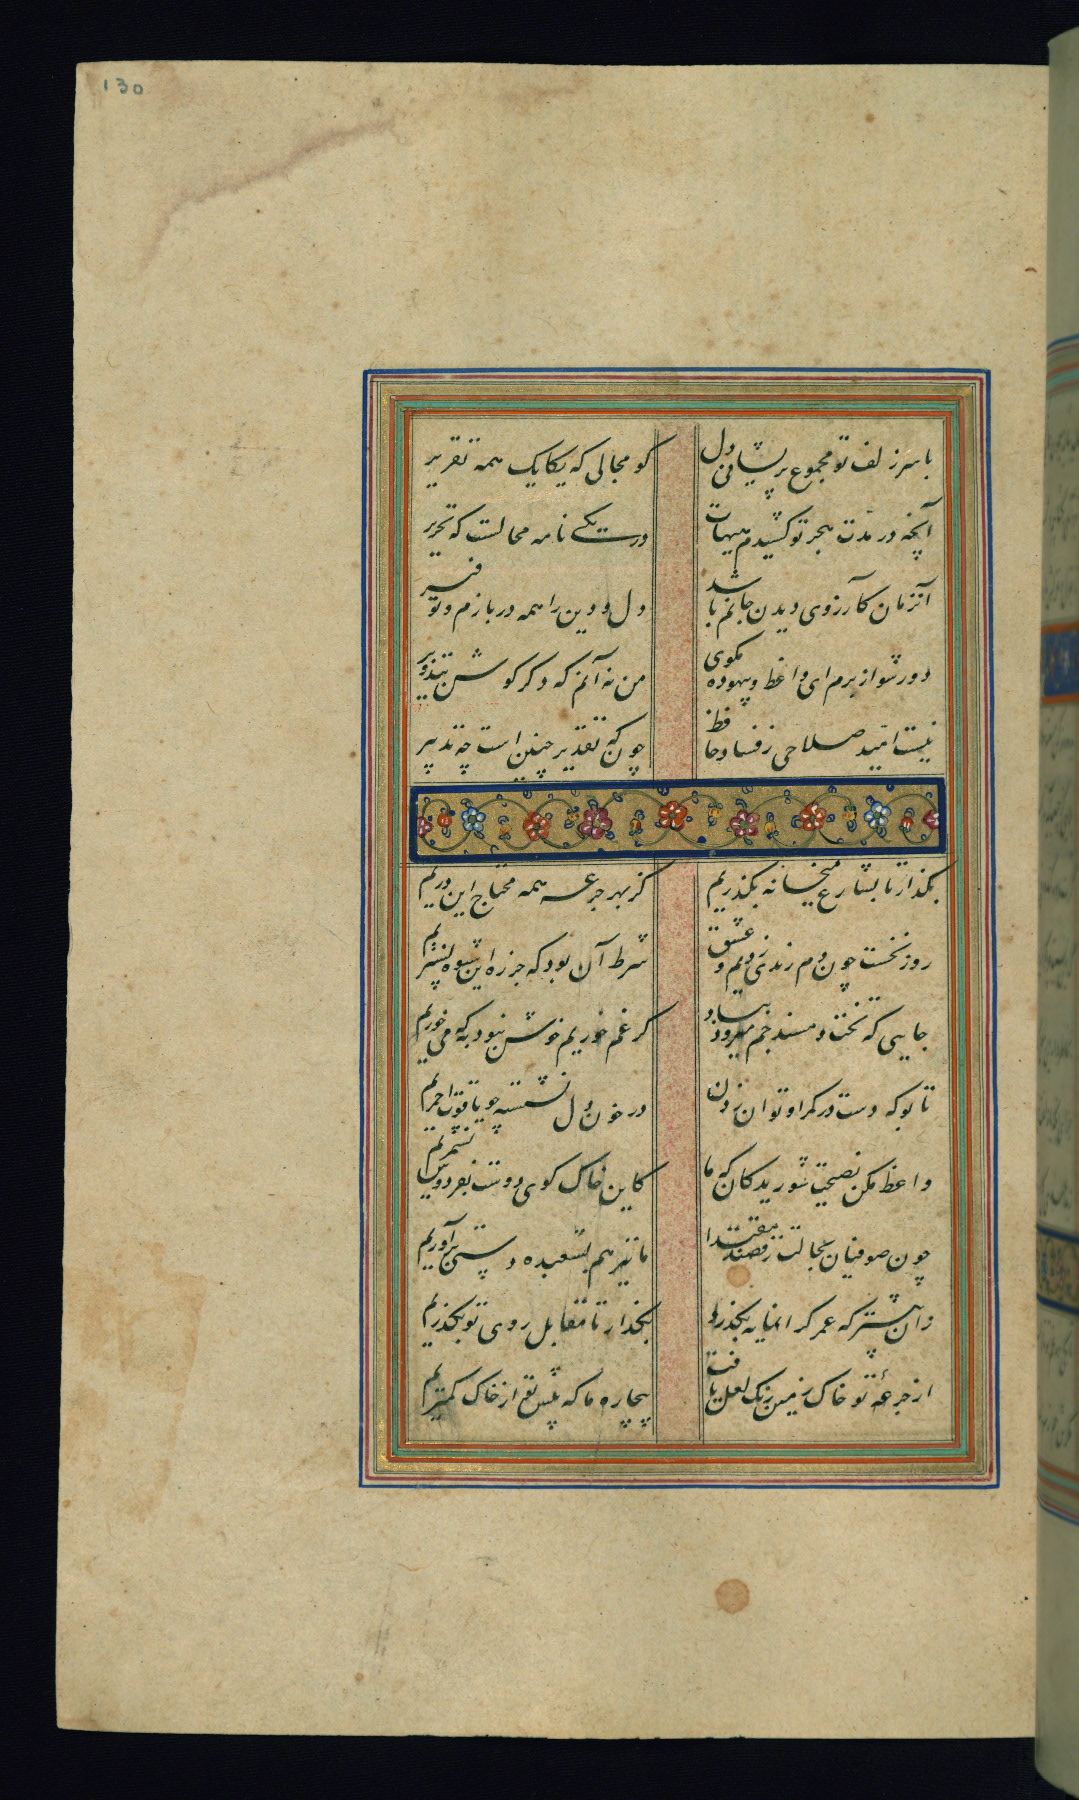 130
با سر زلف تو مجموع پریشانی دل
کو مجالی که یکایک همه تقریر
آنچه در مدت هجر تو کشیدم هیهات
در یکے نامه محالست که تحریر
آنزمان کآرزوی دیدن جانم باشد
دل و دین را همه در بازم و توفیر
دور شو از برم ای واعظ و بیهوده مکوی
من نه آنم که دکر کوش بتزویر
نیست امّید صلاحی ز فساد حافظ
چونکه تقدیر چنین است چه تدبیر
بکذار تا بشارع میخانه بکذریم
کز بهر جرعه همه محتاج این دریم
روز نخست چون دم رندی زدیم و عشق
شرط آن بود که جز ره این شیوه نسپریم
جایی که تخت و مسند جم میرود بباد
کر غم خوریم خوش نبود به که می خوریم
تا بو که دست در کمر او توان زدن
در خون دل نشسته چو یاقوت احمریم
واعظ مکن نصیحت شوریدکان که ما
کاین خاک کوی دوست بفردوس ننکریم
چون صوفیان بحالت رقصند مقتدا
ما نیز هم بشعبده دستی برآوریم
زان پیشتر که عمر کرانمایه بکذرد
بکذار تا مقابل روی تو بکذریم
از جرعهٔ تو خاک زمین رنک لعل یافت
بیچاره ما که پیش تو از خاک کمتریم